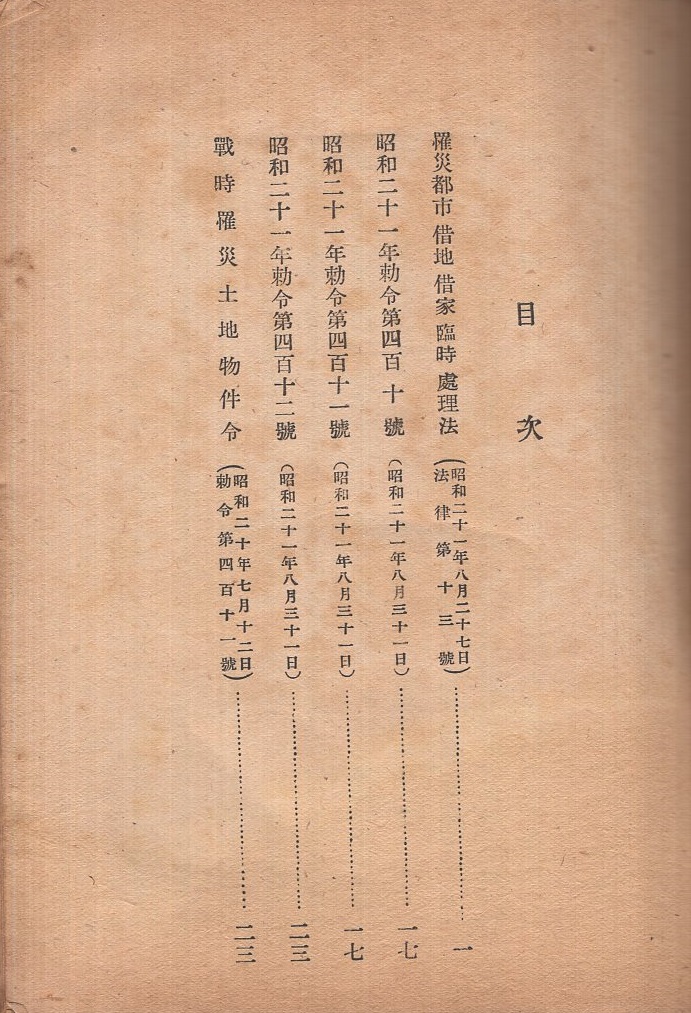 目次
罹災都市借地借家臨時處理法(昭和二十一年八月二十七日法律第十三號)……一
昭和二十一年勅令第四百十號(昭和二十一年八月三十一日)……一七
昭和二十一年勅令第四百十一號(昭和二十一年八月三十一日)……一七
昭和二十一年勅令第四百十二號(昭和二十一年八月三十一日)……二三
戰時罹災土地物件令(昭和二十年七月十二日勅令第四百十一號)……二三